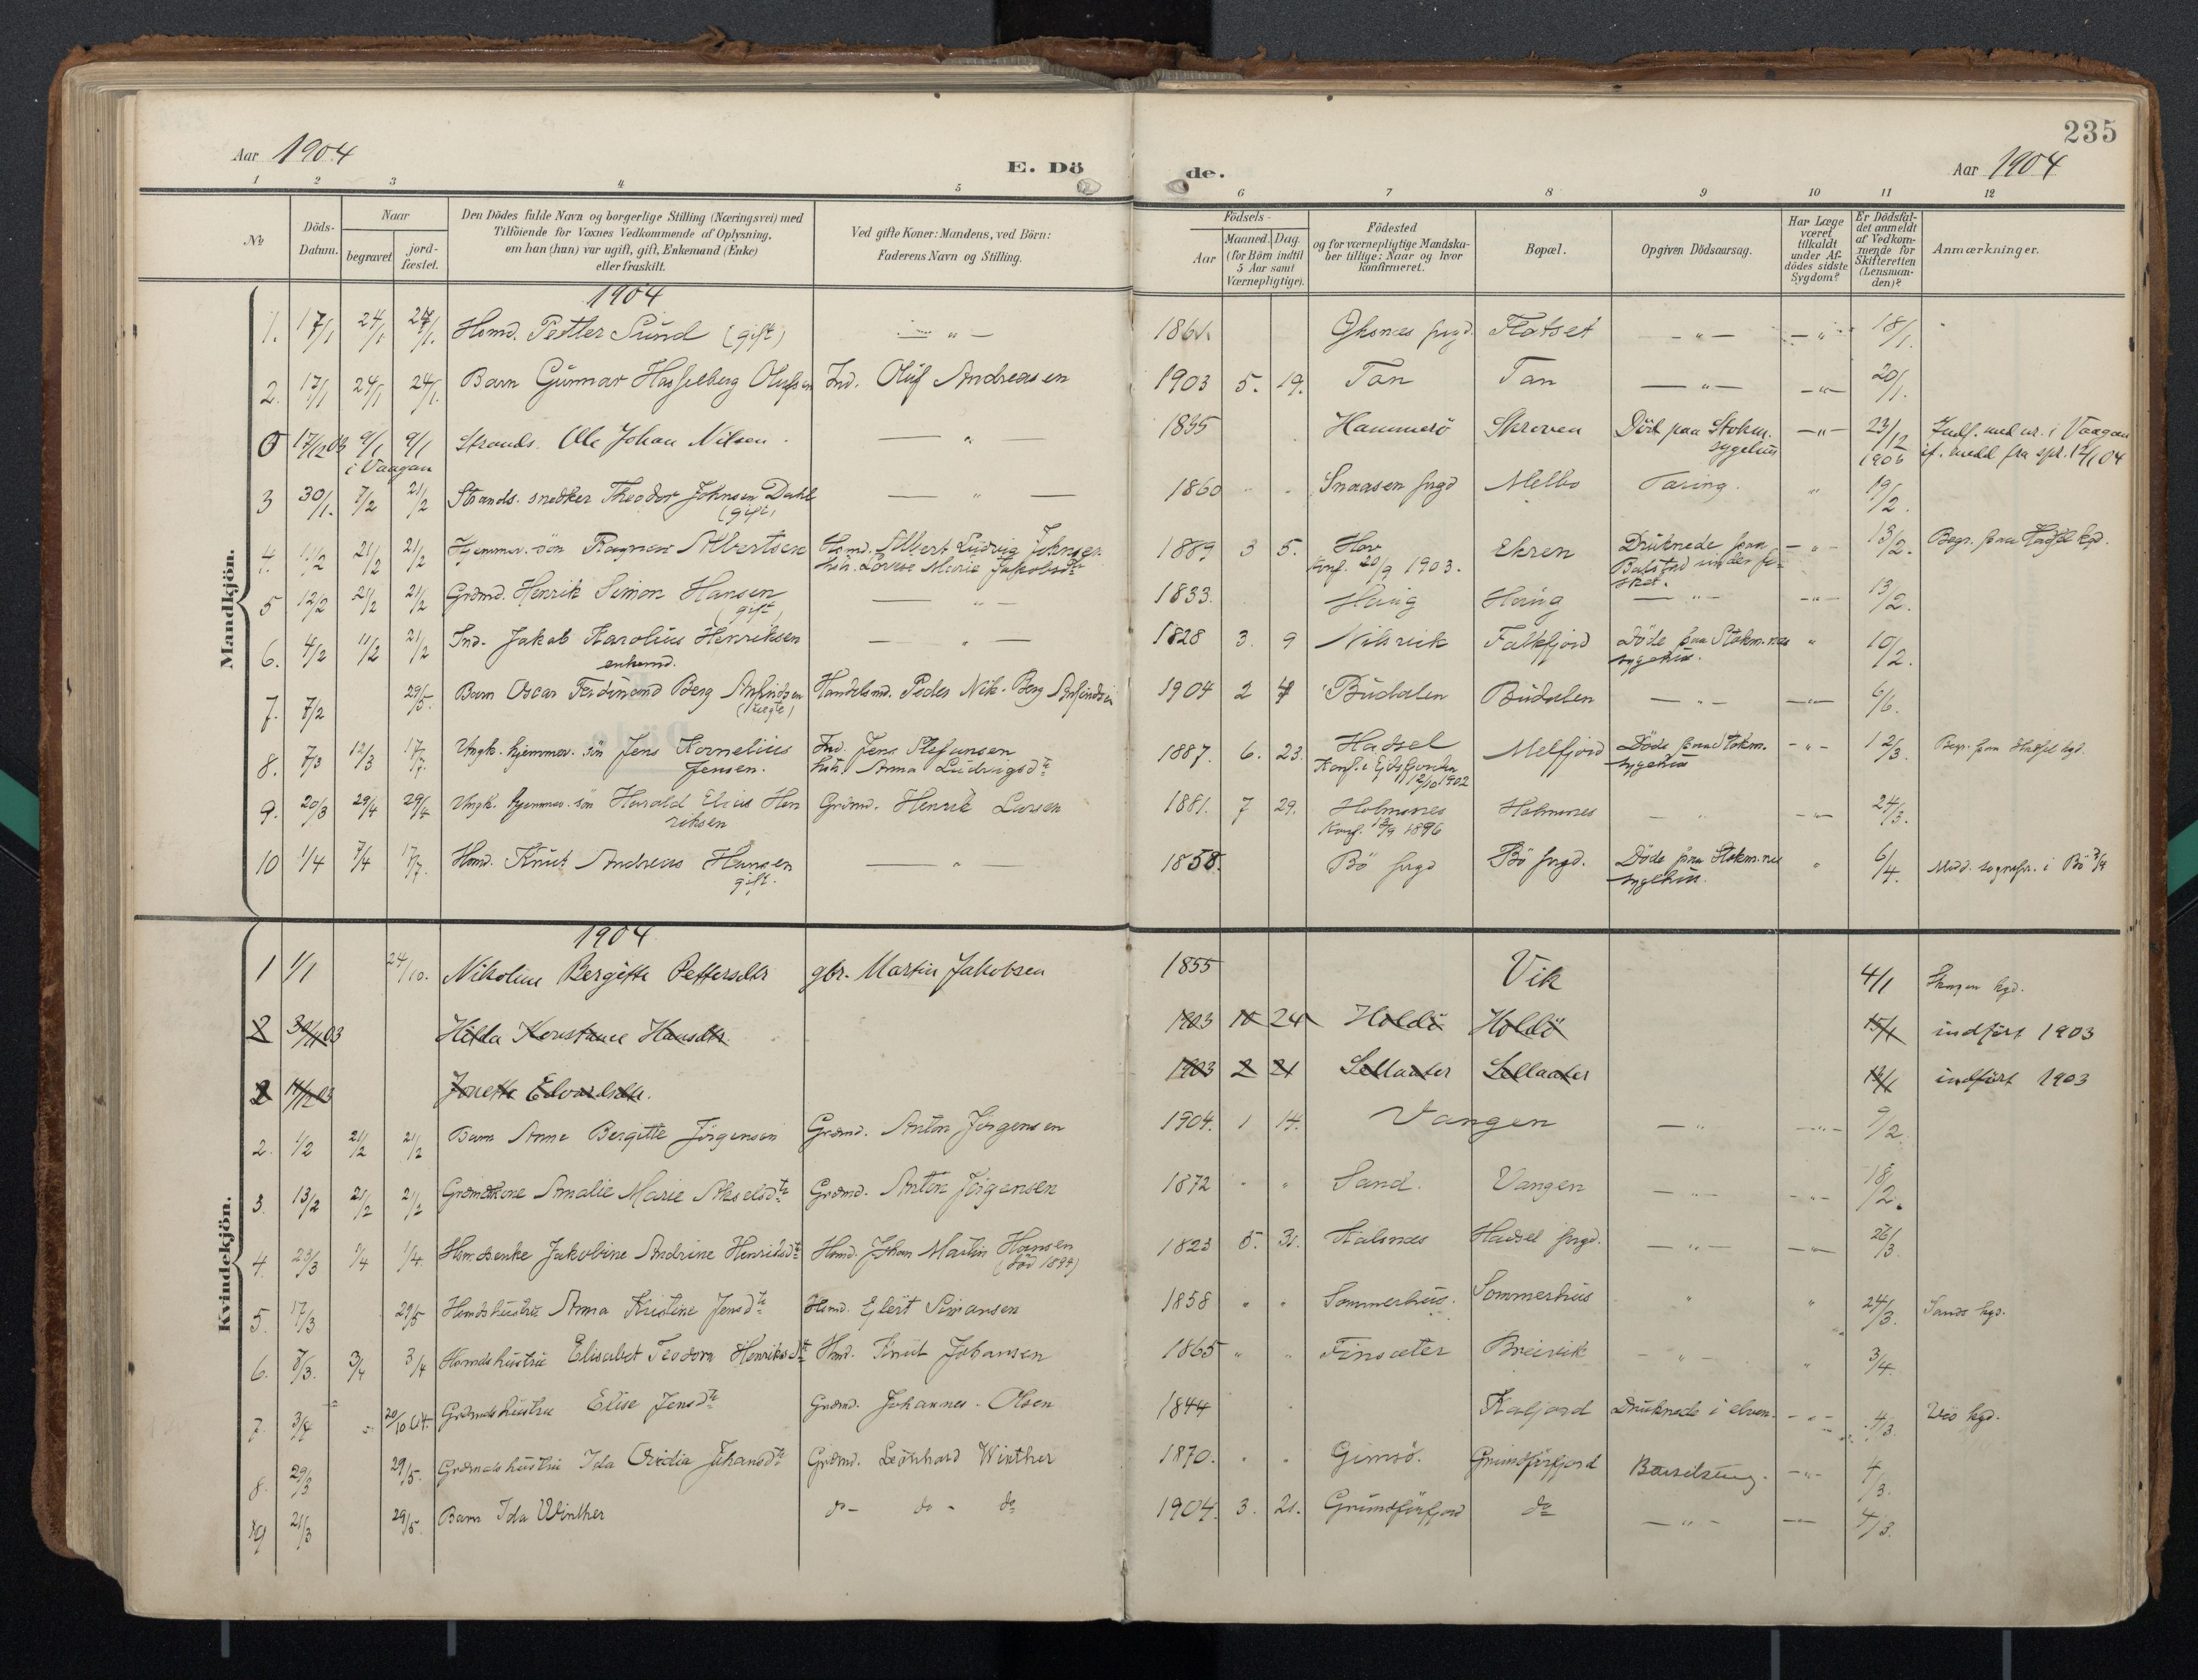 235
Aar 1904
E. Dö
de.
Aar 1904
1 2 3 4 5 6 7 8 9 10 11 12
No
Döds-Datum.
Naar
begravet
jord-fæstet.
Den Dödes fulde Navn og borgerlige Stilling (Næringsvei) med
Tilföiende for Voxnes Vedkommende af Oplysning,
om han (hun) var ugift, gift, Enkemand (Enke)
eller fraskilt.
Ved gifte Koner: Mandens, ved Börn:
Faderens Navn og Stilling.
Födsels-
Aar
Maaned. Dag.
(for Börn indtil
5 Aar samt
Værnepligtige).
Födested
og for værnepligtige Mandska-
ber tillige: Naar og hvor
konfirmeret.
Bopæl.
Opgiven Dödsaarsag.
Har Læge
været
tilkaldt
under Af-
dödes sidste
Sygdom?
Er Dödsfal-
det anmeldt
af Vedkom-
mende for
Skifteretten
(Lensman-
den)?
Anmærkninger.
Mandkjön.
1904
1. 17/1 24/1 24/1. Hsmd. Petter Sund (gift) — " — 1861. Öksnes prgd. Flatset — " — — " — 18/1.
2. 17/1 24/1 24/1. Barn Gunnar Hasselberg Olufsen Ind. Oluf Andreasen 1903 5. 19. Tan Tan — " — — " — 20/1.
0 17/12 03 9/1 9/1 Strands. Ole Johan Nilsen. — " 1835 Hammerö Skroven Död paa Stokm. — " — 23/12 Indf. med nr. i Vaagan
i Vaagan sygehus 1903 if. medd fra spr. 12/1 04
3 30/1. 7/2 21/2 Strands. snedker Theodor Johnsen Dahl — " — 1860 " " Snaasen prgd Melbo Tæring. " 19/2.
(gift)
4. 21/2 21/2 Hjemmev. sön Ragnar Albertsen Hsmd. Albert Ludvig Johnsen 1889 3 5. Hov Ekren Druknede paa — " — 13/2. Begr. paa Hadsel kgd.
hstr. Lovise Marie Jakobsdtr Konf. 20/9 1903. Balstad under fi-
sket.
5 12/2 21/2 21/2 Grdmd. Henrik Simon Hansen — " — 1833. Haug Haug — " — — " — 13/2.
(gift)
6. 4/2 11/2 21/2 Ind. Jakob Karolius Henriksen — " — 1828 3. 9 Falkfjord Döde paa Stokm.nes " 10/2.
enkemd. sygehus.
7. 7/2 29/5. Barn Oscar Ferdinand Berg Arfindsen Handelsmd. Peder Nik. Berg Arfindsen 1904 2 4 Budalen Budalen — " — — " — 6/6.
(uegte)
8. 7/3 12/3 17/7. Ungk. hjemmev. sön Jens Kornelius Ind. Jens Stefansen 1887. 6. 23. Hadsel Melfjord Döde paa Stokm. — " — 12/3. Begr. paa Hadsel kgd.
Jensen. hstr. Anna Ludvigsdtr Konf. i Eidsfjorden sygehus
12/10 1902
9. 20/3 29/4 29/4 Ungk. hjemmev. sön Harald Elias Hen Grdmd. Henrik Larsen 1881. 7 29. Holmsnes Holmsnes — " — " — 24/3.
riksen Konf. 13/9 1896
10 1/4 7/4 17/7. Hsmd. Knut Andreas Hansen — " — 1858. Bö prgd Bö prgd. Döde paa Stokm.nes " 6/4. Medd. sognepr. i Bö 7/4
gift. sygehus.
Kvindekjön.
1904
1 1/1 24/10. Nikoline Bergitte Pettersdtr gbr. Martin Jakobsen 1855 Vik 4/1 Skagen kgd.
2 30/11 03 Hilda Konstance Hansdtr. 1903 10 24 Holdö Holdö 15/1 indfört 1903
2 11/12 03 Jonette Edvardsdtr. 1903 2 21 Sellaater Sellaater 14/1 indfört 1903
2. 1/2 21/2 21/2 Barn Anne Bergitte Jörgensen Grdmd. Anton Jörgensen 1904. 1 14. Vangen — " — " — 9/2.
3. 13/2 21/2 21/2 Grdmdkone Amalie Marie Akselsdtr Grdmd. Anton Jörgensen 1872 " " Sand. Vangen — " — — " — 18/2.
4. 23/3 1/4 1/4. Hsmdsenke Jakobine Andrine Henriksdtr Hsmd. Johan Martin Hansen 1823 5. 31. Kalsnes Hadsel prgd. — " — — " — 26/3.
5. 17/3 29/5 Hsmdshustru Anna Kristine Jensdtr Hsmd. Ejlert Simonsen 1858 " " Sommerhus. Sommerhus " " 24/3. Sands kgd.
6. 8/3. 3/4 3/4 Hsmdshustru Elisabet Teodora Henriksdtr Hsmd. Knut Johansen 1865 " " Finsæter Breivik — " — " 3/4.
7. 3/4 " 20/10 04. Grdmdshustru Elise Jensdtr Grdmd. Johannes Olsen 1844 Kaljord Druknede i elven. — " — 4/3.
8. 29/3 29/5. Grdmdshustru Ida Ovidia Johansdtr Grdmd. Leonhard Winther 1870. " " Gimsö. Grundförfjord Barselseng. — " — 4/3.
9 21/3 29/5. Barn Ida Winther do — do — do 1904. 3. 21. Grundförfjord do — " — — " — 4/3.